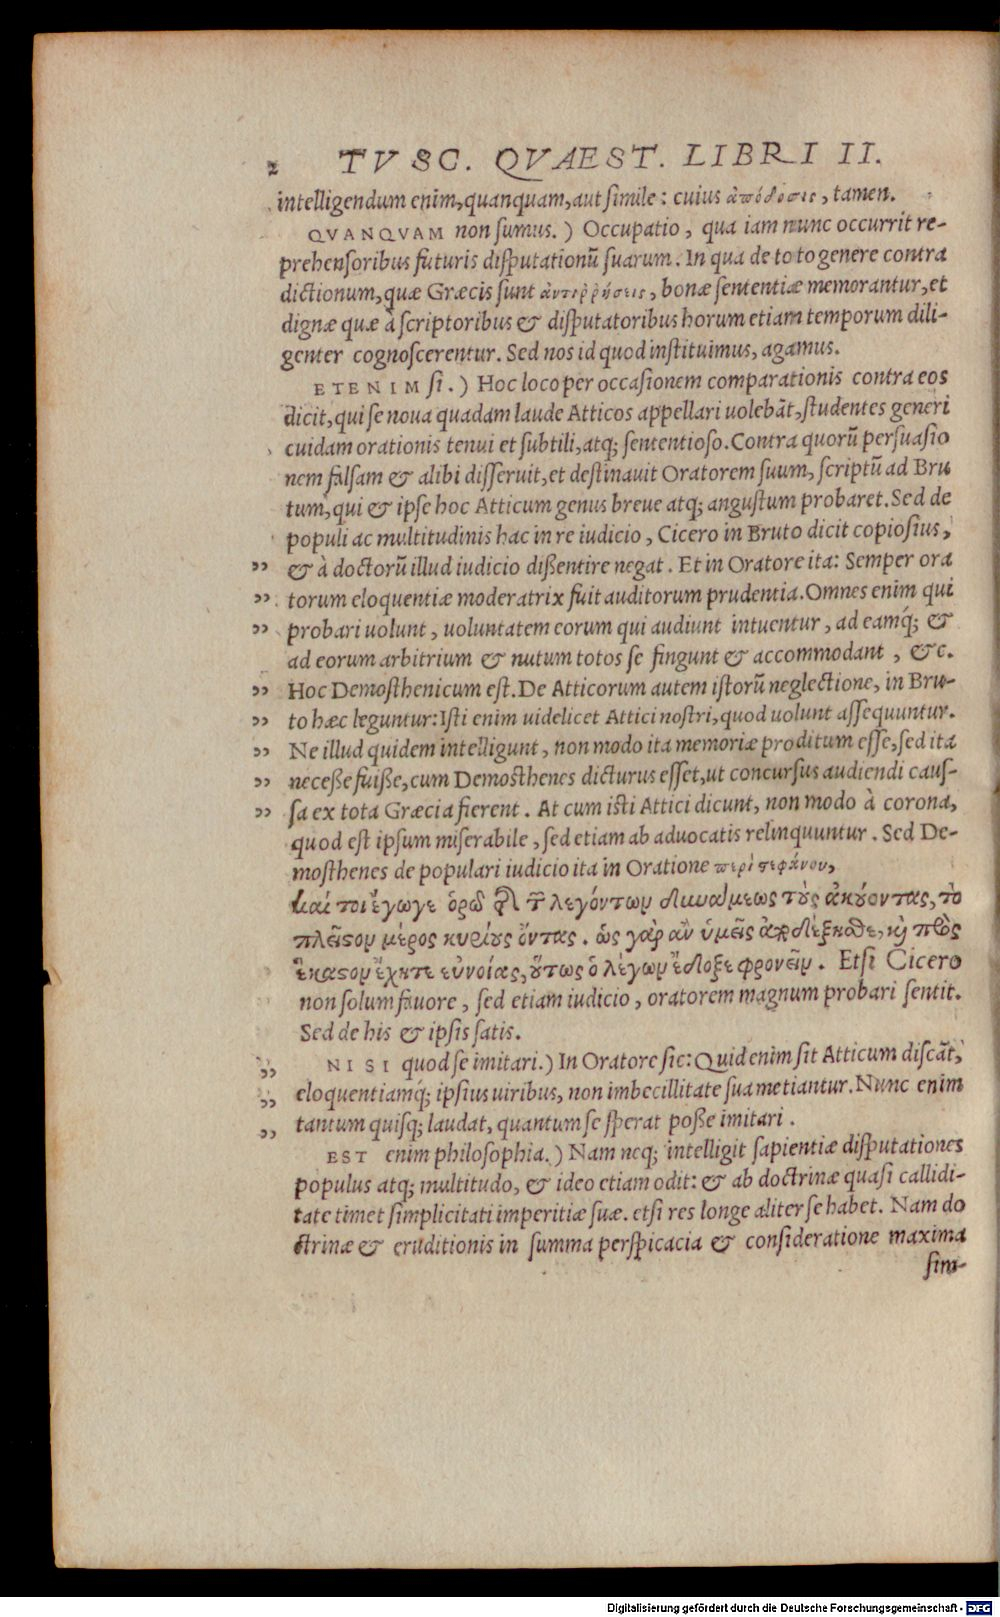 2 TVSC. QVAEST. LIBRI II.
intelligendum enim, quanquam, aut simile: cuius ἀπόδοσις, tamen.
QVANQVAM non sumus.) Occupatio, qua iam nunc occurrit re-
prehensoribus futuris disputationũ suarum. In qua de toto genere contra
dictionum, quæ Græcis sunt ἀντιῤῥήσεις, bonæ sententiæ memorantur, et
dignæ quæ à scriptoribus & disputatoribus horum etiam temporum dili-
genter cognoscerentur. Sed nos id quod instituimus, agamus.
ETENIM si.) Hoc loco per occasionem comparationis contra eos
dicit, qui se noua quadam laude Atticos appellari uolebãt, studentes generi
cuidam orationis tenui et subtili, atq; sententioso. Contra quorũ persuasio
nem falsam & alibi disseruit, et destinauit Oratorem suum, scriptũ ad Bru
tum, qui & ipse hoc Atticum genus breue atq; angustum probaret. Sed de
populi ac multitudinis hac in re iudicio, Cicero in Bruto dicit copiosius,
,, & à doctorũ illud iudicio dißentire negat. Et in Oratore ita: Semper ora
,, torum eloquentiæ moderatrix fuit auditorum prudentia. Omnes enim qui
,, probari uolunt, uoluntatem eorum qui audiunt intuentur, ad eamq́; &
ad eorum arbitrium & nutum totos se fingunt & accommodant, &c.
,, Hoc Demosthenicum est. De Atticorum autem istorũ neglectione, in Bru-
,, to hæc leguntur: Isti enim uidelicet Attici nostri, quod uolunt assequuntur.
,, Ne illud quidem intelligunt, non modo ita memoriæ proditum esse, sed ita
,, neceße fuiße, cum Demosthenes dicturus esset, ut concursus audiendi caus-
,, sa ex tota Græcia fierent. At cum isti Attici dicunt, non modo à corona,
quod est ipsum miserabile, sed etiam ab aduocatis relinquuntur. Sed De-
mosthenes de populari iudicio ita in Oratione περὶ στεφάνου,
καί τοι ἔγωγε ὁρῶ τῆς τῶν λεγόντων δυνάμεως τοὺς ἀκούοντας, τὸ
πλεῖστον μέρος κυρίους ὄντας. ὡς γὰρ ἂν ὑμεῖς ἀποδέξησθε, καὶ πρὸς
ἕκαστον ἔχητε εὐνοίας, οὕτως ὁ λέγων ἔδοξε φρονεῖν. Etsi Cicero
non solum fauore, sed etiam iudicio, oratorem magnum probari sentit.
Sed de his & ipsis satis.
,, NISI quod se imitari.) In Oratore sic: Quid enim sit Atticum discãt,
,, eloquentiamq́; ipsius uiribus, non imbecillitate sua metiantur. Nunc enim
,, tantum quisq; laudat, quantum se sperat poße imitari.
EST enim philosophia.) Nam neq; intelligit sapientiæ disputationes
populus atq; multitudo, & ideo etiam odit: & ab doctrinæ quasi callidi-
tate timet simplicitati imperitiæ suæ. etsi res longe aliter se habet. Nam do
ctrinæ & eruditionis in summa perspicacia & consideratione maxima
sim-
Digitalisierung gefördert durch die Deutsche Forschungsgemeinschaft - DFG